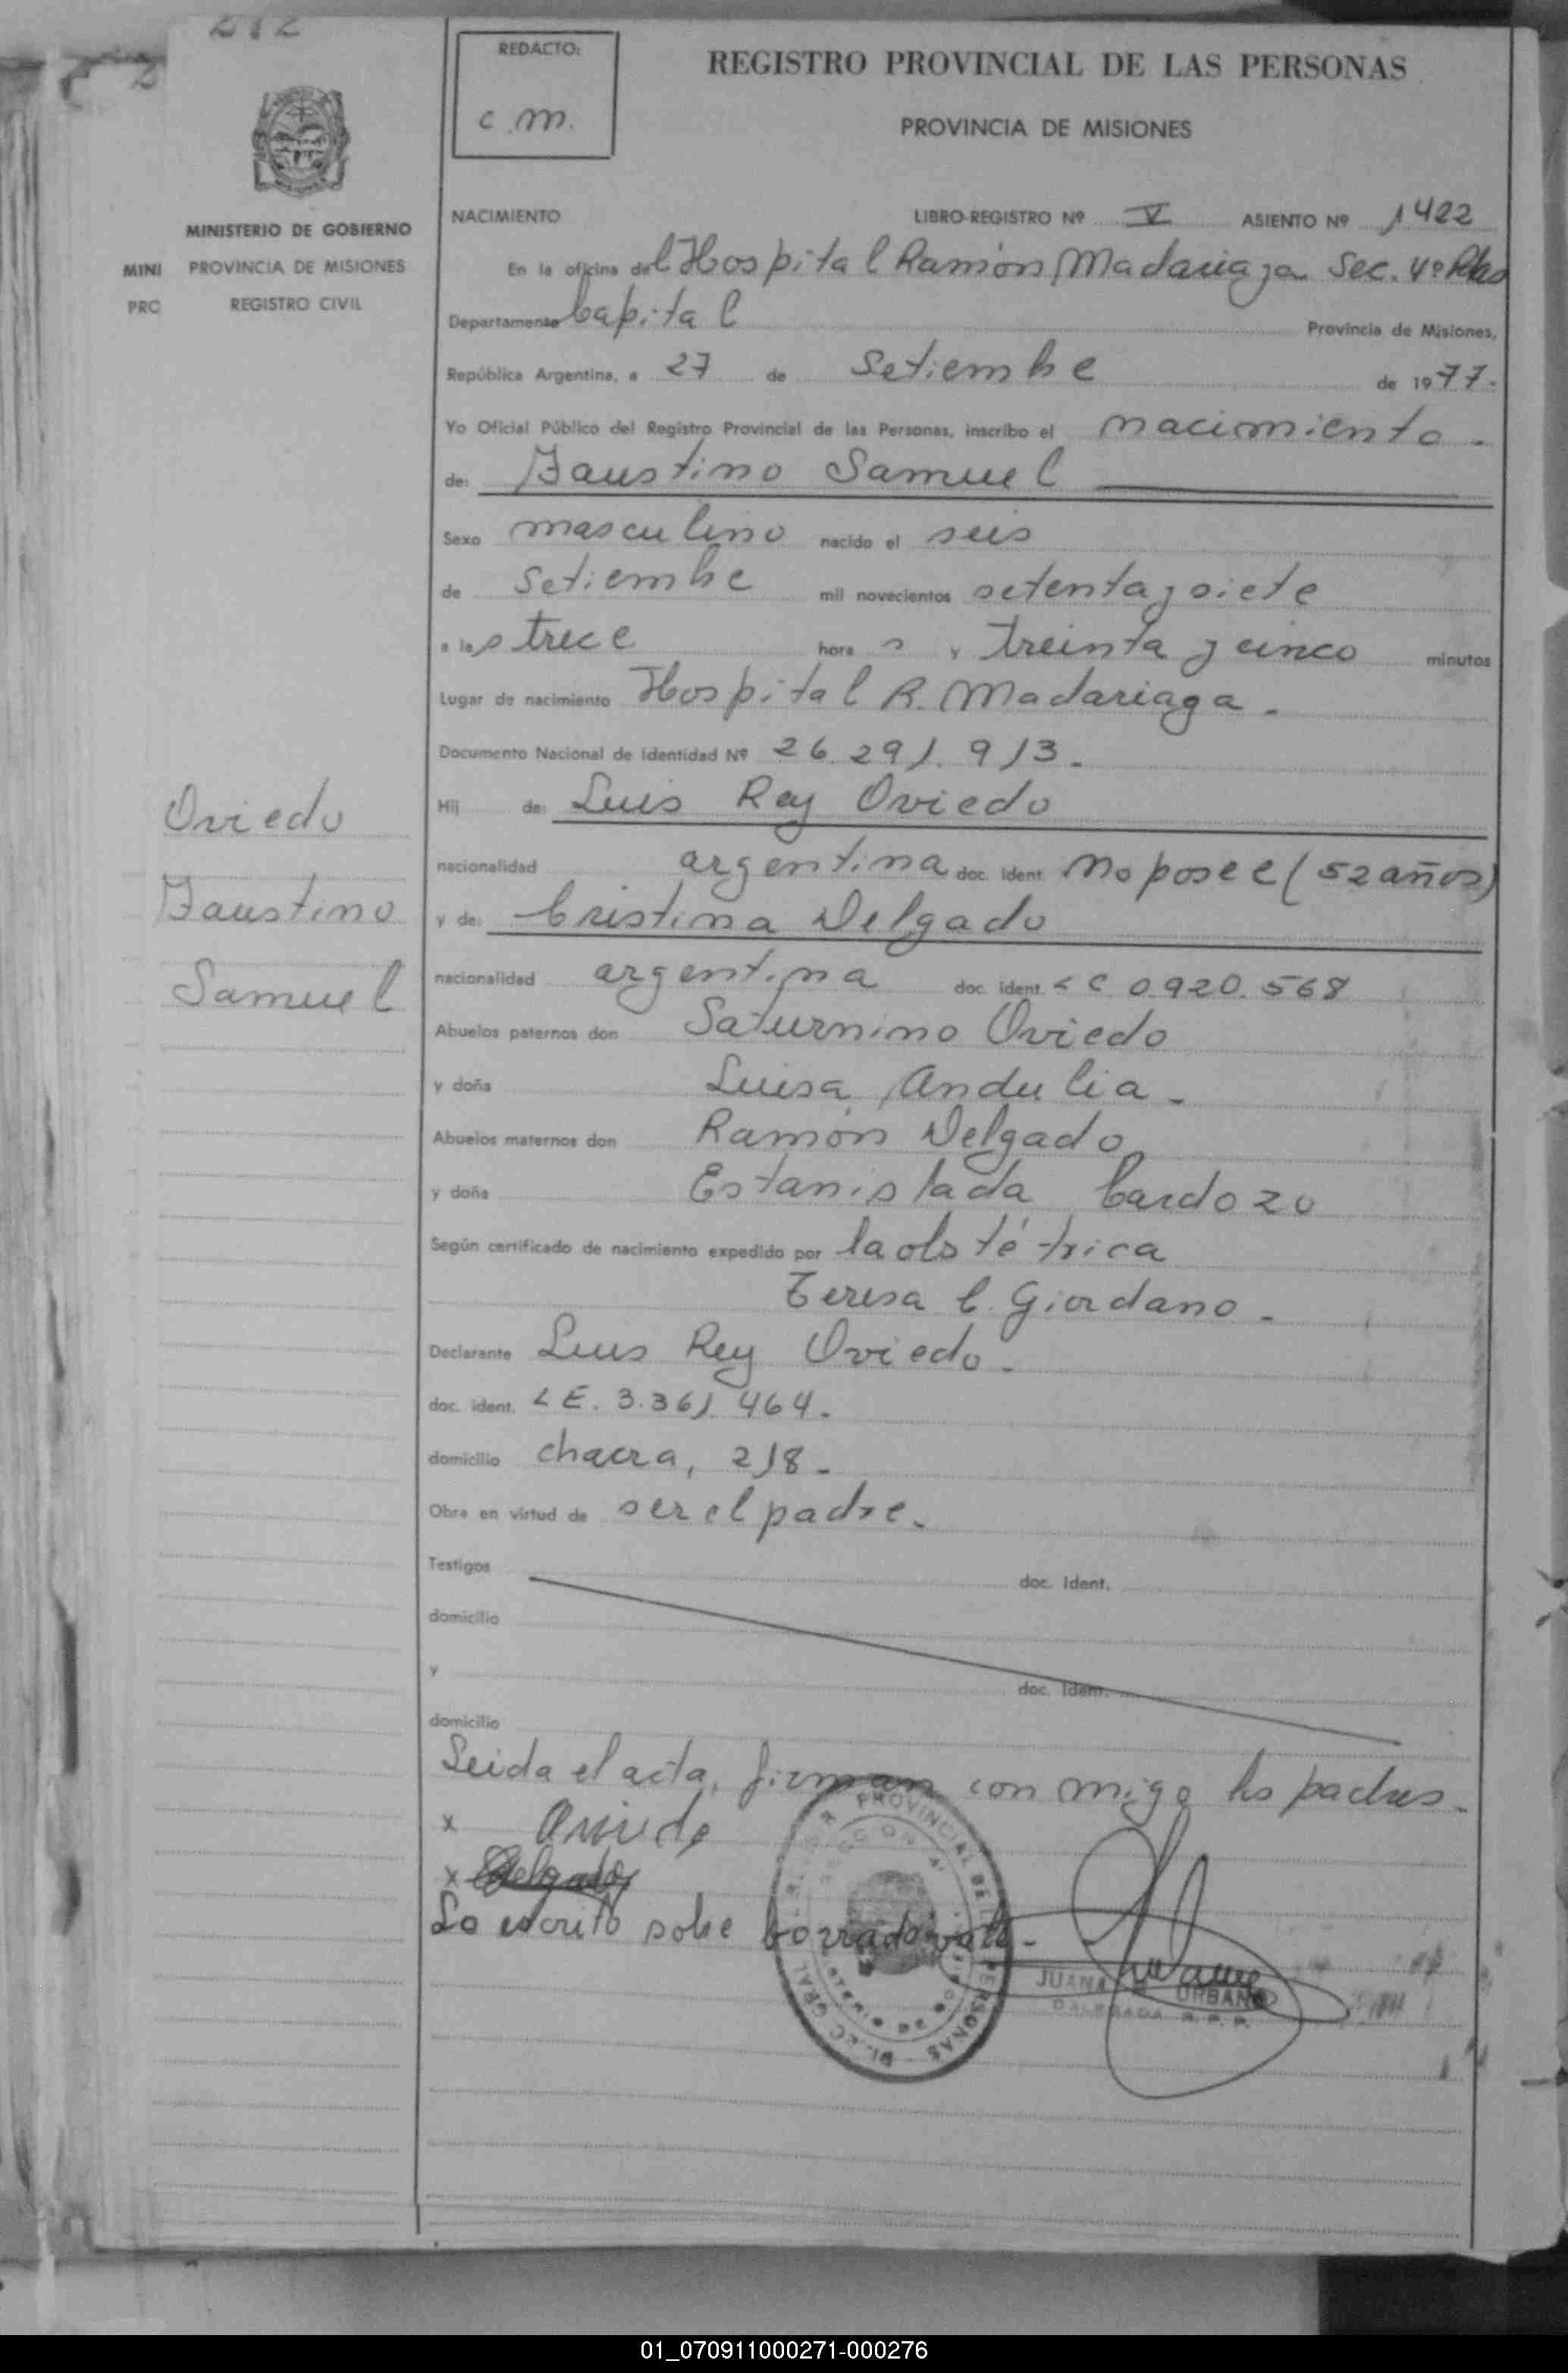 212
REDACTO:
c.m.
REGISTRO PROVINCIAL DE LAS PERSONAS
PROVINCIA DE MISIONES
MINISTERIO DE GOBIERNO
MINI PROVINCIA DE MISIONES
PRO REGISTRO CIVIL
NACIMIENTO LIBRO-REGISTRO Nº V ASIENTO Nº 1422
En la oficina del Hospital Ramón Madariaga Sec. 4º
Departamento Capital Provincia de Misiones,
República Argentina, a 27 de Setiembre de 1977.-
Yo Oficial Público del Registro Provincial de las Personas, inscribo el nacimiento.
de: Faustino Samuel
Sexo masculino nacido el seis
de Setiembre mil novecientos setenta y siete
a las trece hora s y treinta y cinco minutos
Lugar de nacimiento Hospital R. Madariaga.
Documento Nacional de Identidad Nº 26.291.913.
Oviedo
Faustino
Samuel
Hij de: Luis Rey Oviedo
nacionalidad argentina doc. Ident. No posee (52 años)
y de: Cristina Delgado
nacionalidad argentina doc. ident. LC 0.920.568
Abuelos paternos don Saturnino Oviedo
y doña Luisa Andulia.
Abuelos maternos don Ramón Delgado
y doña Estanislada Cardozo
Según certificado de nacimiento expedido por la obstétrica
Teresa C. Giordano.
Declarante Luis Rey Oviedo.
doc. ident. LE. 3.361.464.
domicilio chacra, 218.
Obra en virtud de ser el padre.
Testigos doc. Ident.
domicilio
y doc. Ident.
domicilio
Leida el acta, firman con migo los padres.
x Oviedo
x Delgado
Lo escrito sobre borrado vale.
PROVINCIAL DE LAS PERSONAS
JUANA URBANO
DELEGADA R. P. P.
01_070911000271-000276